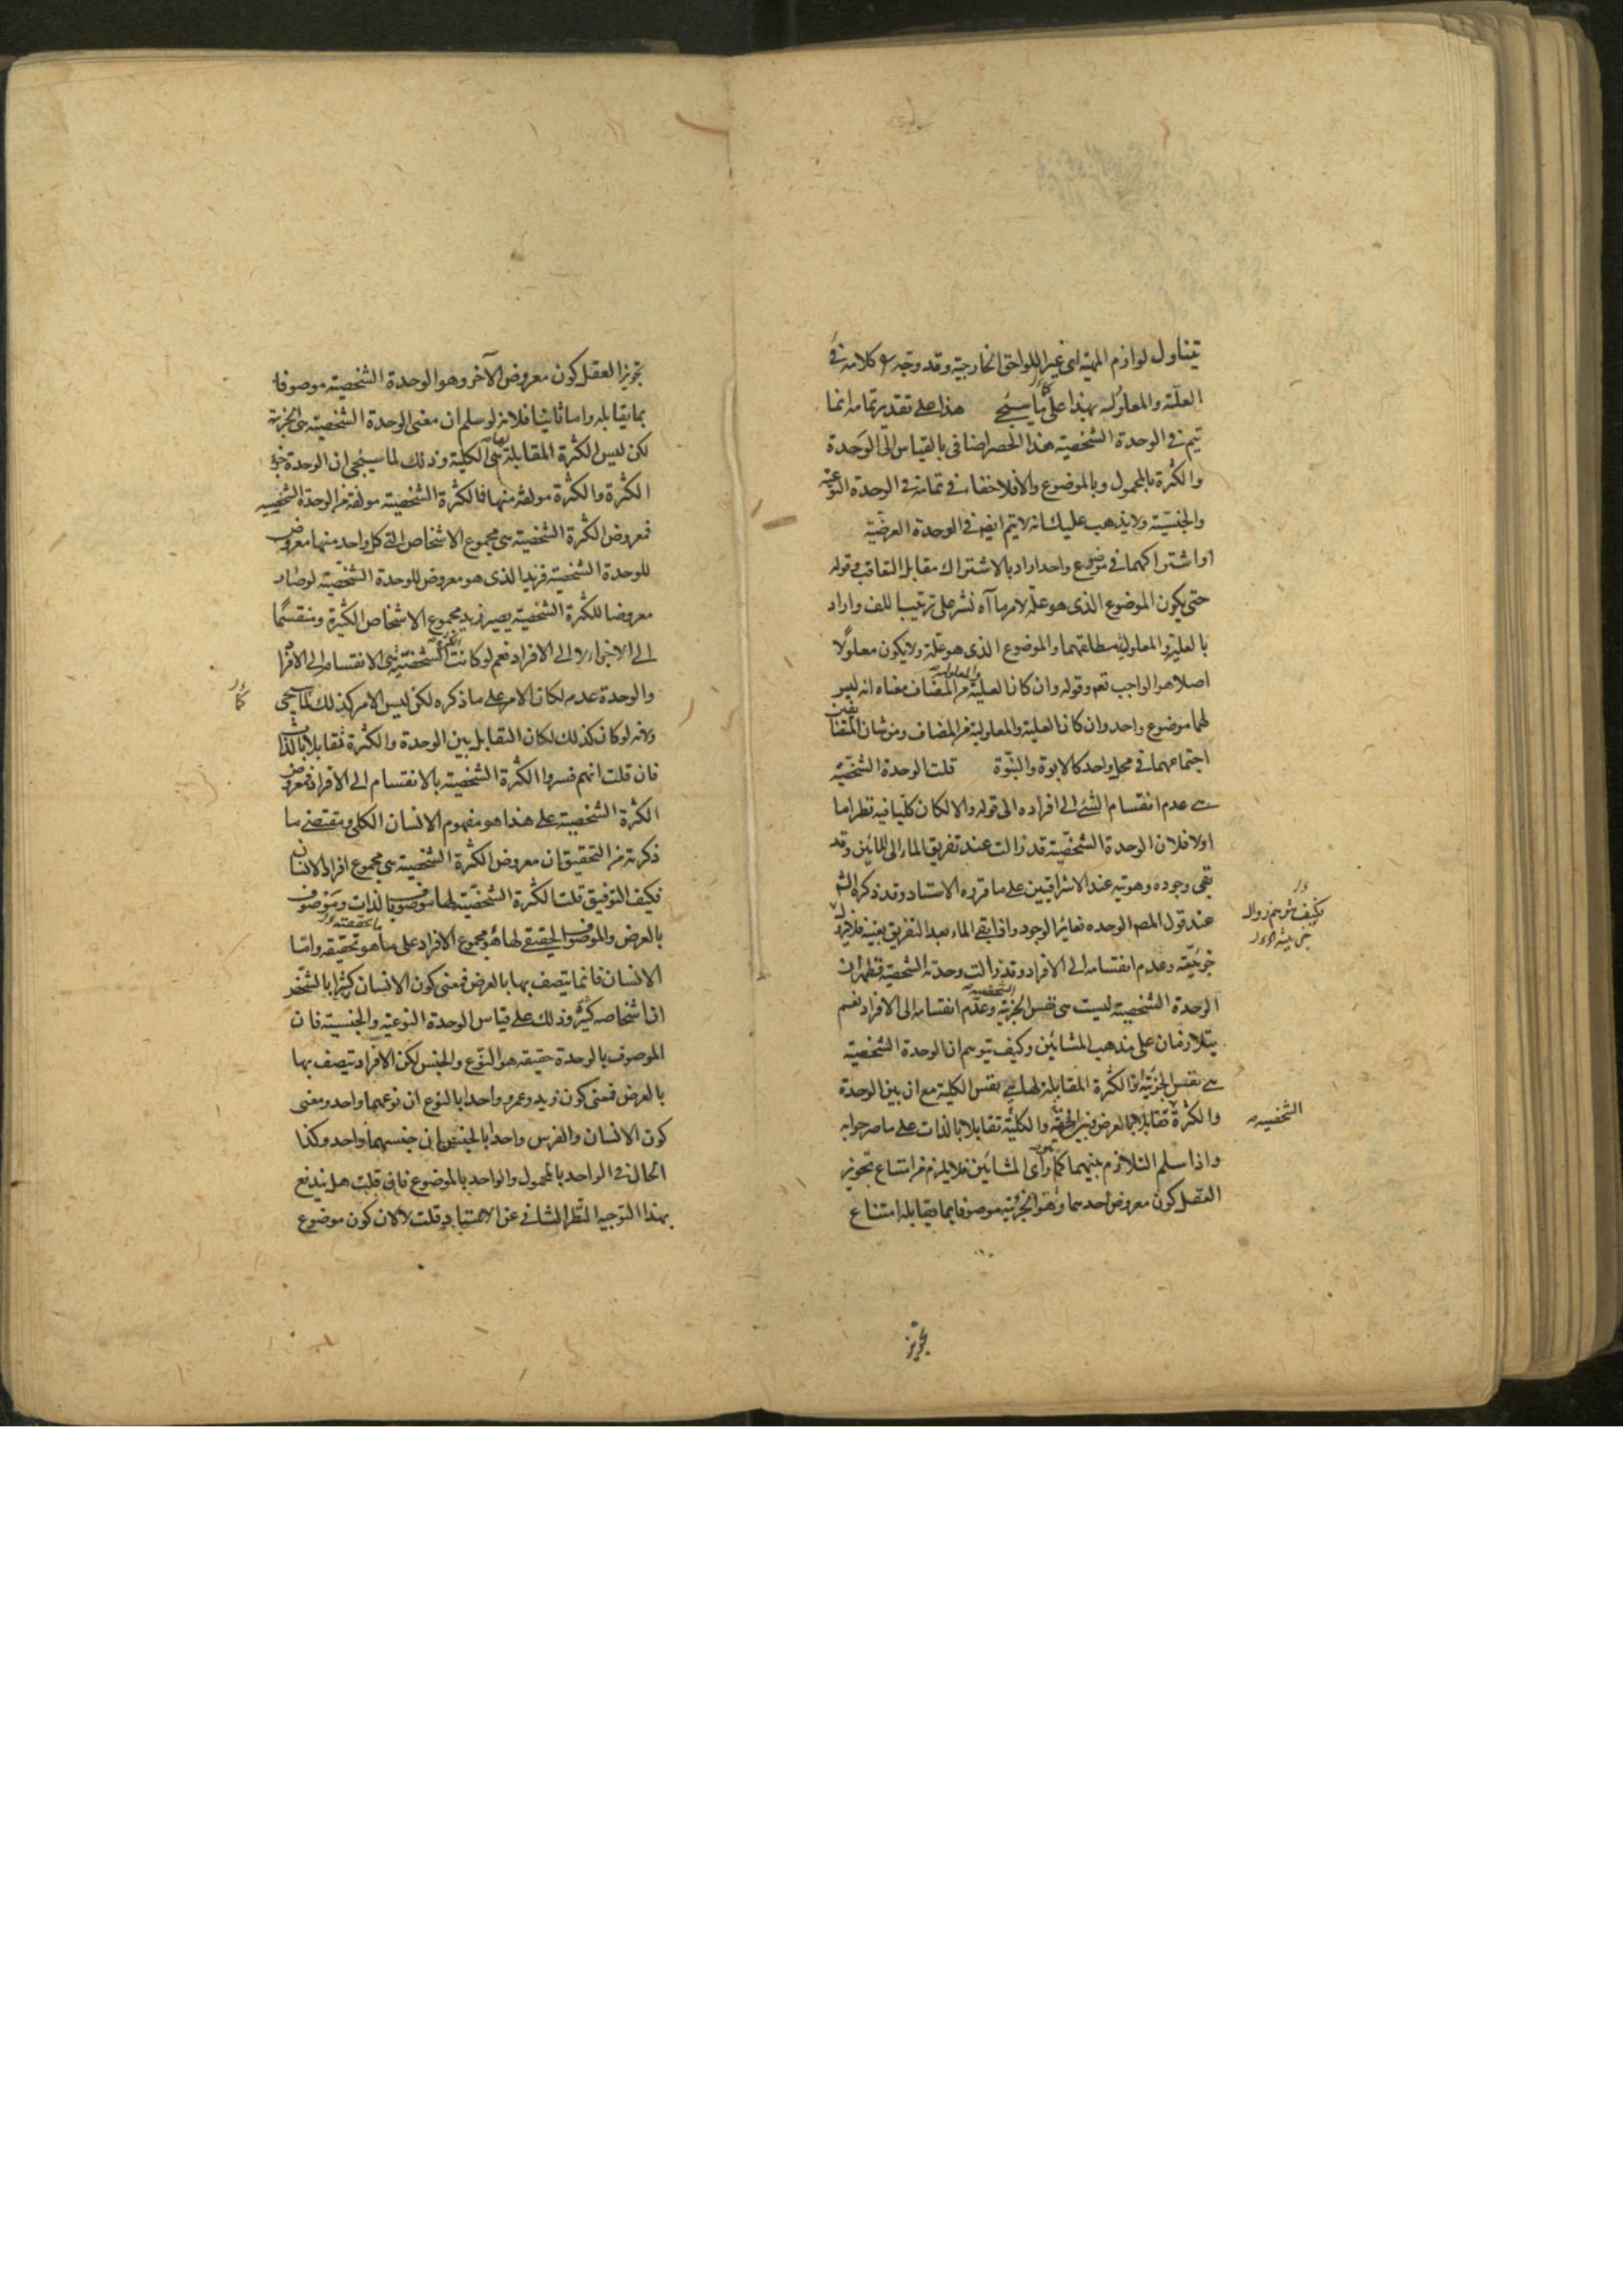 يتناول لوازم المهية اى غير اللواحق الخارجية وقد وجه كلامه فى
العلة والمعلول بهذا على ما سيجئ هذا على تقدير تمامه انما
يتم فى الوحدة الشخصية هذا الحصر اضافى بالقياس الى الوحدة
والكثرة بالمحمول وبالموضوع والا فلا خفاء فى تمامه فى الوحدة النوعية
والجنسية ولا يذهب عليك انه لا يتم ايضا فى الوحدة العرضية
او اشتراكهما فى موضوع واحد اراد بالاشتراك مقابل التعاقب وقوله
حتى يكون الموضوع الذى هو علة لامر ما آه نشر على ترتيب اللف واراد
بالعلية والمعلولية مطلقهما والموضوع الذى هو علة ولا يكون معلولا
اصلا هو الواجب تعم وقوله وان كانا لعلية والمعلولية من المضاف معناه انه ليس
لهما موضوع واحد وان كانا العلية والمعلولية من المضاف ومن شان المتضايفين
اجتماعهما فى محل واحد كالابوة والبنوة قلت الوحدة الشخصية
هے عدم انقسام الشئ الى افراده الى قوله والا لكان كليا فيه نظر اما
اولا فلان الوحدة الشخصية قد زالت عند تفريق الماء الى المائين وقد
بقى وجوده وهويته عند الاشراقيين على ما قرره الاستاد وقد ذكره الش
عند قول المصم الوحده تغاير الوجود واذا بقے الماء بعد التفريق بعينه فلا يزول
جزئيته وعدم انقسامه الى الافراد وقد زالت وحدته الشخصية فظهر ان
الوحدة الشخصية ليست هى نفس الجزئية وعدم انقسامه الى الافراد نعم
يتلازمان على مذهب المشائين وكيف يتوهم ان الوحدة الشخصية
هے نفس الجزئية والكثرة المقابلة لها هے نفس الكلية مع ان بين الوحدة
والكثرة تقابلا بالعرض وبين الجزئية والكلية تقابلا بالذات على ما صرحوا به
واذا سلم التلازم بينهما كما هو رأى المشائين فلا يلزم من امتناع تجويز
العقل كون معروض احدهما وهو الجزئية موصوفا بما يقابله امتناع
الشخصية
تجويز
تجويز العقل كون معروض الآخر وهو الوحدة الشخصية موصوفا
بما يقابله واما ثانيا فلانه لو سلم ان معنى الوحدة الشخصية هى الجزئية
لكن ليس الكثرة المقابلة لها هى الكلية وذلك لما سيجئ ان الوحدة جزء
الكثرة والكثرة مولفة منها فالكثرة الشخصية مولفة من الوحدة الشخصية
فمعروض الكثرة الشخصية هى مجموع الاشخاص التى كل واحد منها معروض
للوحدة الشخصية فزيد الذى هو معروض للوحدة الشخصية لو صار
معروضا للكثرة الشخصية يصير زيد مجموع الاشخاص الكثيرة ومنقسما
الى الاجزاء لا الى الافراد نعم لو كانت الكثرة الشخصية هى الانقسام الى الافراد
والوحدة عدمه لكان الامر على ما ذكره لكن ليس الامر كذلك لما سيجئ
ولانه لو كان كذلك لكان التقابل بين الوحدة والكثرة تقابلا بالذات
فان قلت انهم فسروا الكثرة الشخصية بالانقسام الى الافراد فمعروض
الكثرة الشخصية على هذا هو مفهوم الانسان الكلى ومقتضے ما
ذكرته من التحقيق ان معروض الكثرة الشخصية هى مجموع افراد الانسان
فكيف التوفيق قلت الكثرة الشخصية لها موصوف بالذات وموصوف
بالعرض والموصوف الحقيقے لها هو مجموع الافراد على ما هو تحقيقه واما
الانسان فانما يتصف بها بالعرض فمعنى كون الانسان كثيرا بالشخص
ان اشخاصه كثيرة وذلك على قياس الوحدة النوعية والجنسية فان
الموصوف بالوحدة حقيقة هو النوع والجنس لكن الافراد يتصف بها
بالعرض فمعنى كون زيد وعمرو واحدا بالنوع ان نوعهما واحد ومعنى
كون الانسان والفرس واحدا بالجنس ان جنسهما واحد وكذا
الحال فى الواحد بالمحمول والواحد بالموضوع فان قلت هل يندفع
بهذا التوجيه النظر الثانى عن الاستاد قلت لا لان كون موضوع